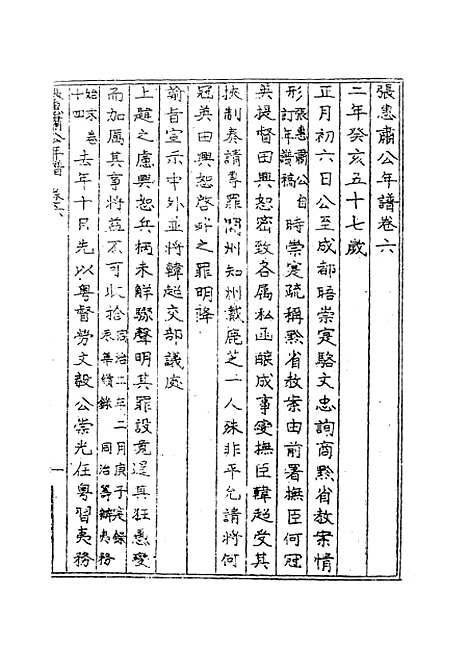 張惠肅公年譜卷六
二年癸亥五十七歲
正月初六日公至成都晤崇寔駱文忠詢商黔省教案情
形張惠肅公自訂年譜稿時崇寔疏稱黔省教案由前署撫臣何冠
英提督田興恕密致各属私函釀成事變撫臣韓超受其
挾制奏請專罪開州知州戴鹿芝一人殊非平允請將何
冠英田興恕啓衅之罪明降
諭旨宣示中外並將韓超交部議處
上韙之慮興恕兵柄未解驟聲明其罪設竟逞其狂愚變
而加厲其事將益不可收拾同治二年二月庚子實錄東華續錄同治籌辦夷務
始末卷十四去年十月先以粤督勞文毅公崇光任粤習夷務
張惠肅公年譜 卷六
一